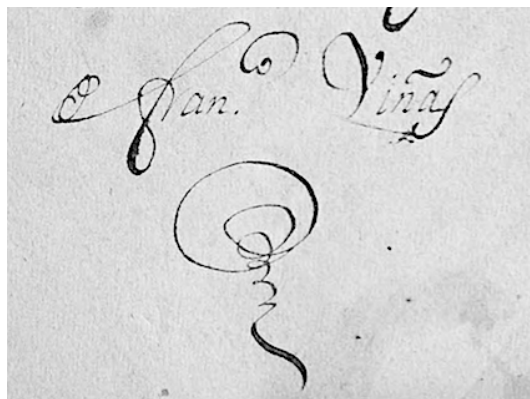 fran.co Viñas